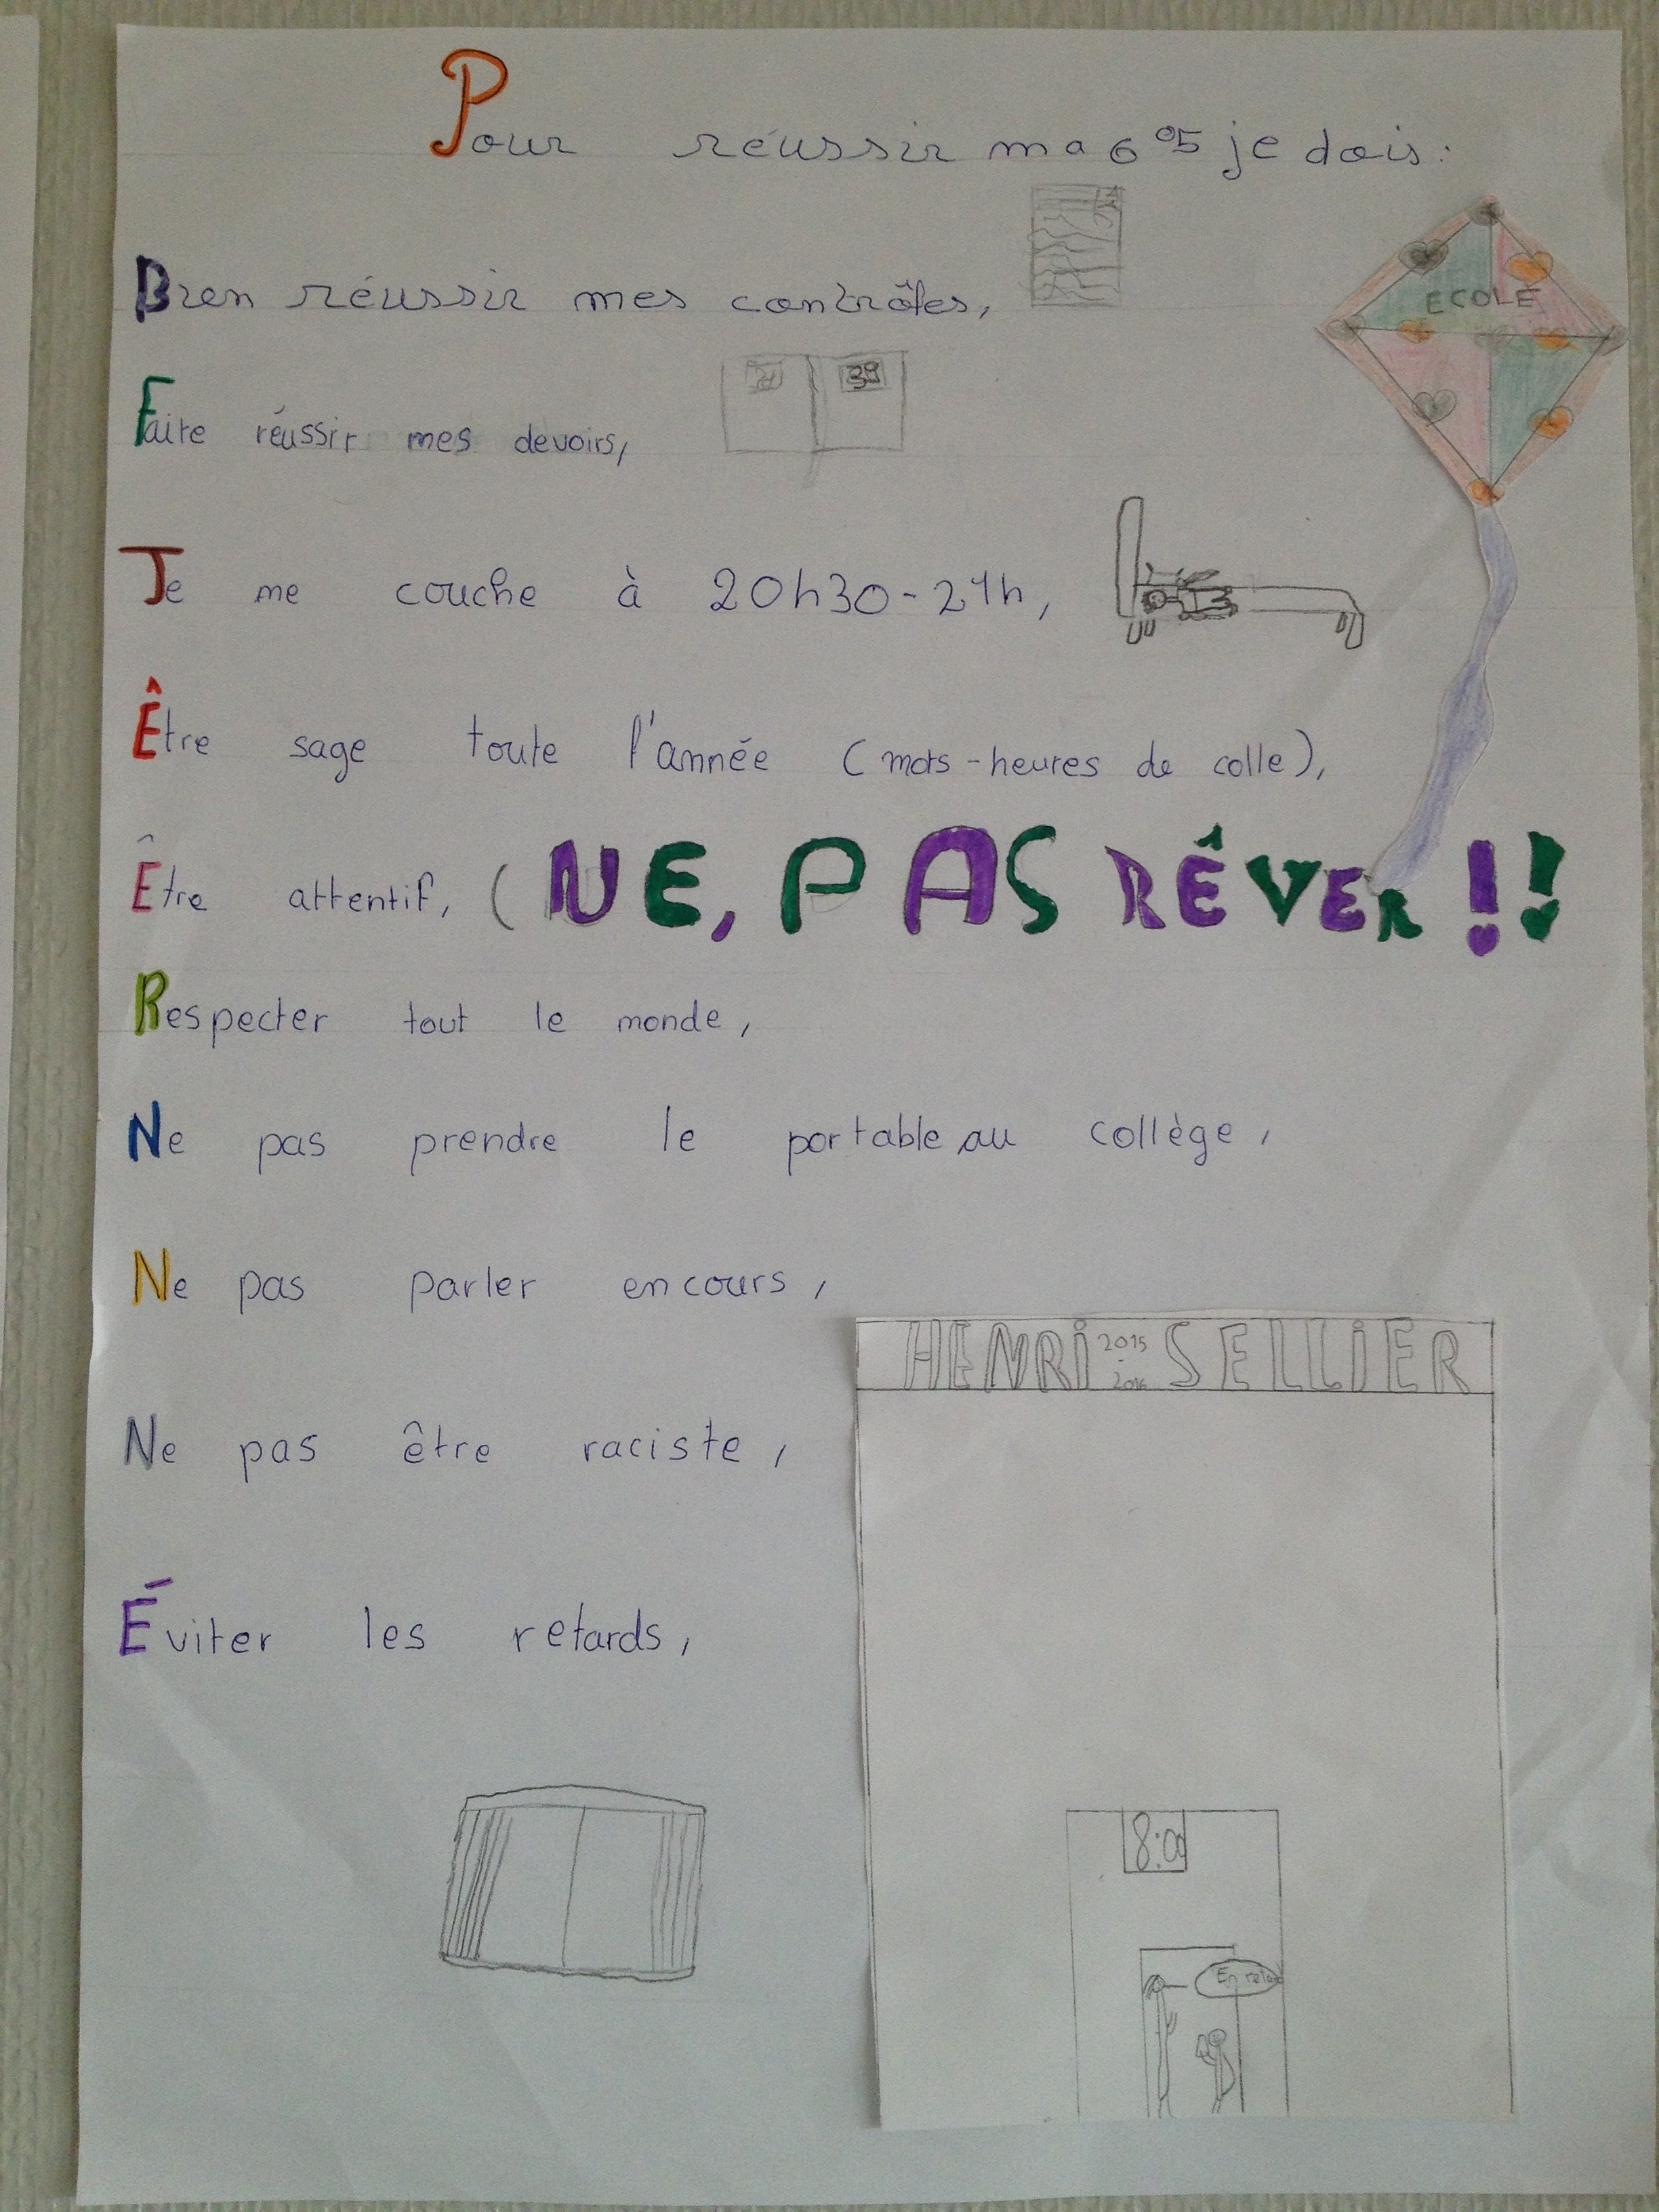 Pour réussir ma 6°5 je dois:
Bien réussir mes contrôles,
ECOLE
39
Faite réussir mes devoirs,
Je me couche à 20h30-21h,
Être sage toute l'année (mots-heures de colle),
Être attentif, (NE, PAS RÊVER !!
Respecter tout le monde,
Ne pas prendre le portable au collège,
Ne pas parler en cours,
HENRI 2015-2016 SELLIER
Ne pas être raciste,
Éviter les retards,
8:00
En retard